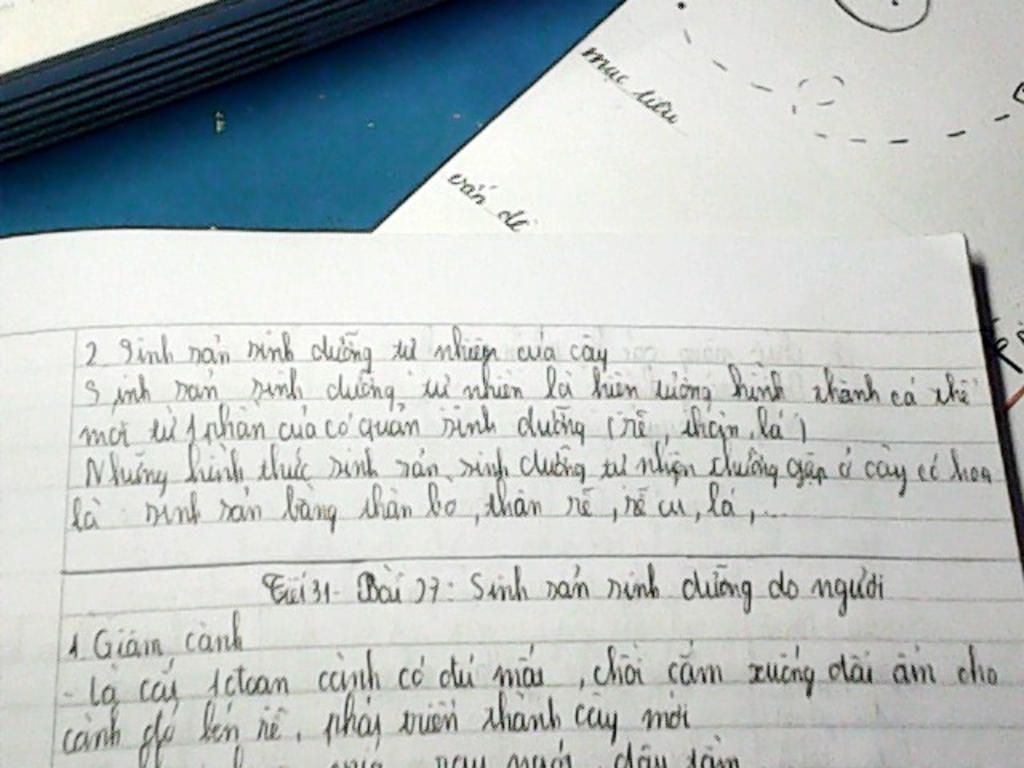 mục tiêu
vấn đề
2. Sinh sản sinh dưỡng tự nhiên của cây
Sinh sản sinh dưỡng tự nhiên là hiện tượng hình thành cá thể
mới từ 1 phần của cơ quan sinh dưỡng (rễ, thân, lá)
Những hình thức sinh sản sinh dưỡng tự nhiên thường gặp ở cây có hoa
là: sinh sản bằng thân bò, thân rễ, rễ củ, lá,...
Tiết 31- Bài 27: Sinh sản sinh dưỡng do người
1. Giâm cành
- Là cắt 1 đoạn cành có đủ mắt, chồi cắm xuống đất ẩm cho
cành đó bén rễ, phát triển thành cây mới
rau dâu tằm